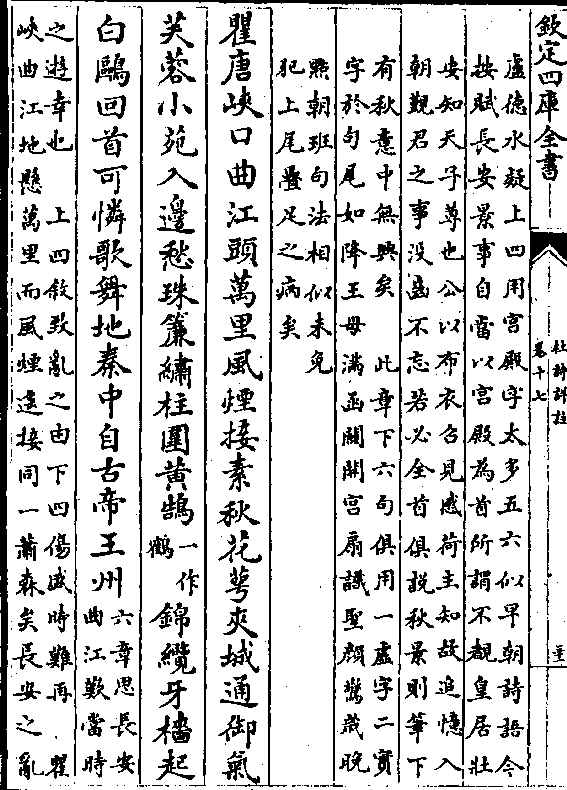 欽定四庫全書
杜詩詳註
卷十七
盧德水疑上四用宫殿字太多五六似早朝詩語今
按賦長安景事自當以宫殿為首所謂不覩皇居壯
安知天子尊也公以布衣召見感荷主知故追憶入
朝覲君之事没齒不忘若必全首俱説秋景則筆下
有秋意中無興矣　此章下六句俱用一虚字二實
字於句尾如降王母滿函關開宫扇識聖顔驚歲晚
點朝班句法相似未免
犯上尾疊足之病矣
瞿唐峽口曲江頭萬里風煙接素秋花萼夾城通御氣
芙蓉小苑入邊愁珠簾繡柱圍黃鵠一作鶴錦纜牙檣起
白鷗回首可憐歌舞地秦中自古帝王州
六章思長安
曲江歎當時
之遊幸也　上四敘致亂之由下四傷盛時難再　瞿
峽曲江地懸萬里而風煙遠接同一蕭森矣長安之亂